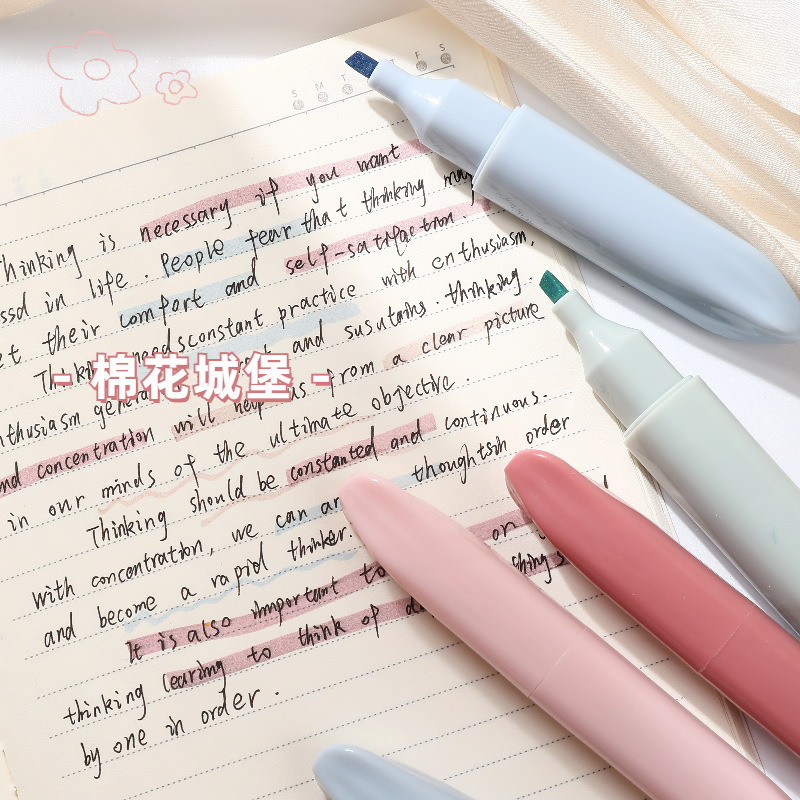 S M T T F S
Thinking is necessary if you want
life. People fear that thinking may
their comfort and self-satisfaction
Thinking needs constant practice with enthusiasm,
and susutains. thinking
- 棉花城堡 -
enthusiasm will help us from a clear picture
and concentration
in our minds of the ultimate objective.
Thinking should be constanted and continuous.
with concentration, we can thoughtsin order
and become a rapid thinker.
It is also important to on
thinking learing to think of
by one in order.